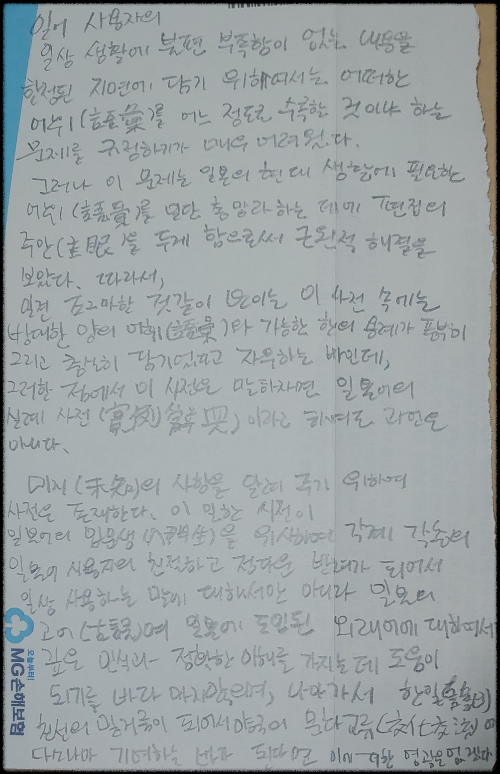 일어 사용자의
일상 생활에 불편 부족함이 없는 내용을
한정된 지면에 담기 위해서는 어떠한
어휘(語彙)를 어느 정도로 수록할 것이냐 하는
문제를 규정하기가 매우 어려웠다.
그러나 이 문제는 일본의 현대 생활에 필요한
어휘(語彙)를 일단 총망라하는 데에 편집의
주안(主眼)을 두게 함으로써 근원적 해결을
보았다. 따라서,
일견 조그마한 것같이 보이는 이 사전 속에는
방대한 양의 어휘(語彙)와 가능한 한의 용례가 풍부히
그리고 충분히 담기었다고 자부하는 바인데,
그러한 점에서 이 사전은 말하자면 일본어의
실례 사전(實例辭典)이라고 하여도 과언은
아니다.
미지(未知)의 사항을 알려 주기 위하여
사전은 존재한다. 이 일한 사전이
일본어의 입문생(入門生)을 위시하여 각계 각층의
일본어 사용자의 친절하고 정다운 반려가 되어서
일상 사용하는 말에 대해서만 아니라 일본의
고어(古語)며 일본에 도입된 외래어에 대하여서
깊은 인식과 정확한 이해를 가지는 데 도움이
되기를 바라 마지않으며, 나아가서 한일
친선의 밑거름이 되어서 양국의 문화교류(文化交流)에
다소나마 기여하는 바가 된다면 이에 더한 영광은 없겠다
오늘부터!
MG손해보험